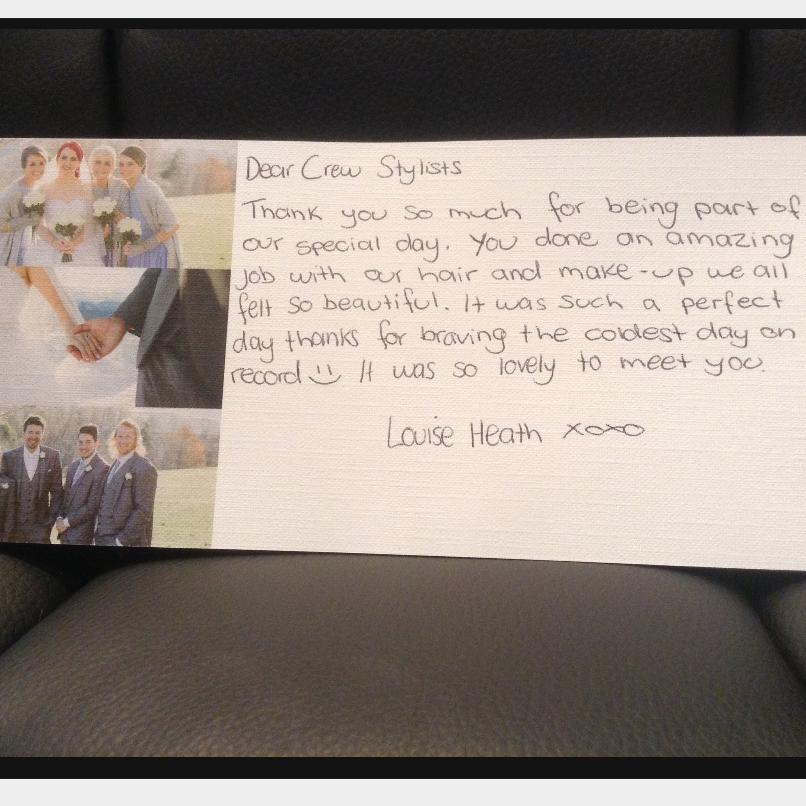 Dear Crew Stylists
Thank you so much for being part of
our special day. You done an amazing
job with our hair and make-up we all
felt so beautiful. It was such a perfect
day thanks for braving the coldest day on
record :) It was so lovely to meet you.
Louise Heath xoxo